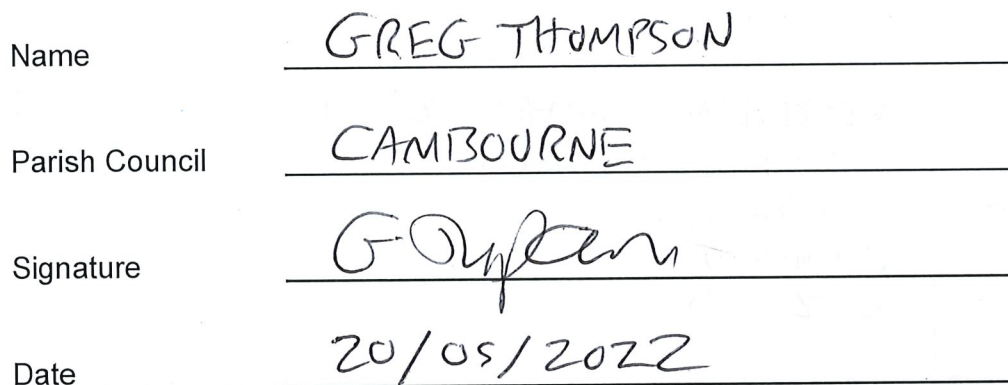 Name GREG THOMPSON
Parish Council CAMBOURNE
Signature
Date 20/05/2022